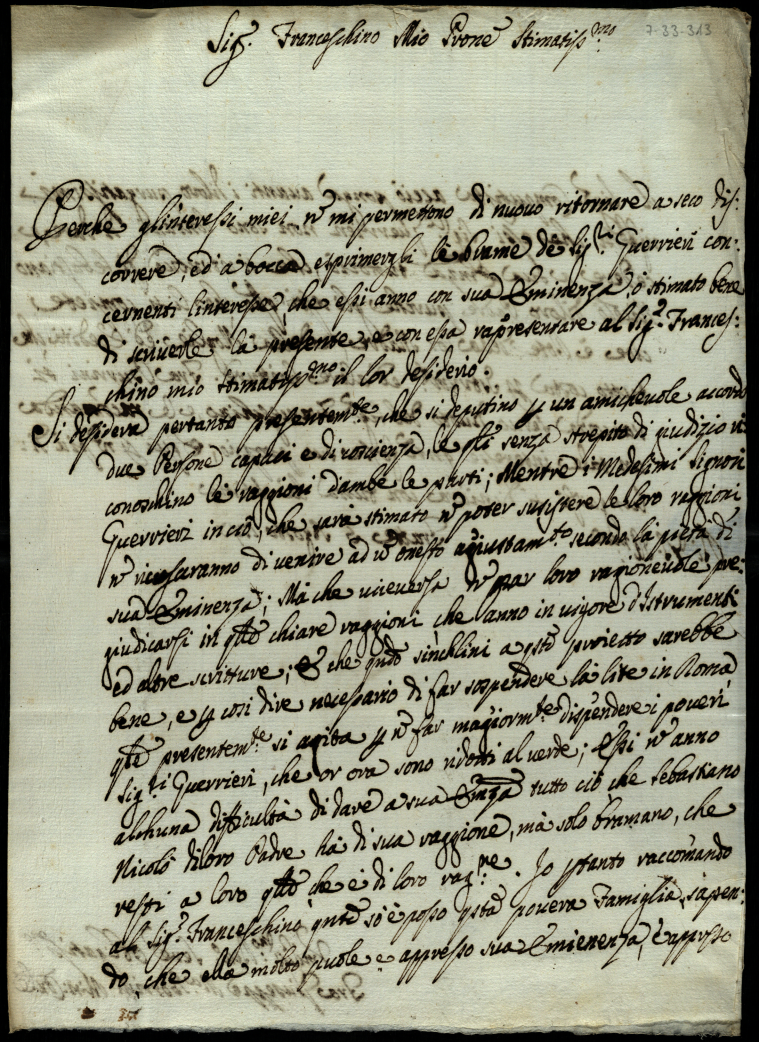 7-33-313
Sig.r Franceschino Mio P̃rone Stimatiss.mo
Perche gl'interessi miei nõ mi permettono di nuovo ritornare a seco dis:
correre, ed a bocca esprimergli le brame de Sig.ri Guerrieri con:
cernenti l'interesse, che essi anno con sua Eminenza, ó stimato bene
di scriverle la presente, e con essa rapresentare al Sig.r Frances:
chino mio Stimatiss.mo il lor desiderio.
Si desidera pertanto presentem.te, che si deputino p un amichevole accordo
due Persone capaci e di coscienza, le q̃li senza strepito di giudizio ri
conoschino le raggioni d'ambe le parti; Mentre i Medesimi Signori
Guerrieri in ciò, che sarà stimato nõ poter susistere le loro raggioni
nõ ricuseranno di venire ad ũ onesto agiustam.to secondo la pietà di
sua Eminenza; Mà che viceversa nõ par loro ragionevole pre:
giudicarsi in q̃lle chiare raggioni che anno in vigore d'Istrumenti
ed altre scritture; E che q̃ndo s'inchlini a q̃sto proietto sarebbe
bene, e p cosi dire necessario di far sospendere la lite in Roma
q̃lle presentem.te si agita p nõ far magiorm.te dispendere i poveri
Sig.ri Guerrieri, che or ora sono ridotti al verde; Essi nõ anno
alchuna difficultà di dare a sua Em̃za tutto ciò che Sebastiano
Nicolò di loro Padre hà di sua raggione, mà solo bramano, che
resti a loro q̃llo che è di loro rag.ne. Io p̃tanto raccomando
al Sig.r Franceschino q̃nto sò è posso q̃sta povera Famiglia, sapen:
do, che ella molto puole e appresso sua Emienenza, è appresso